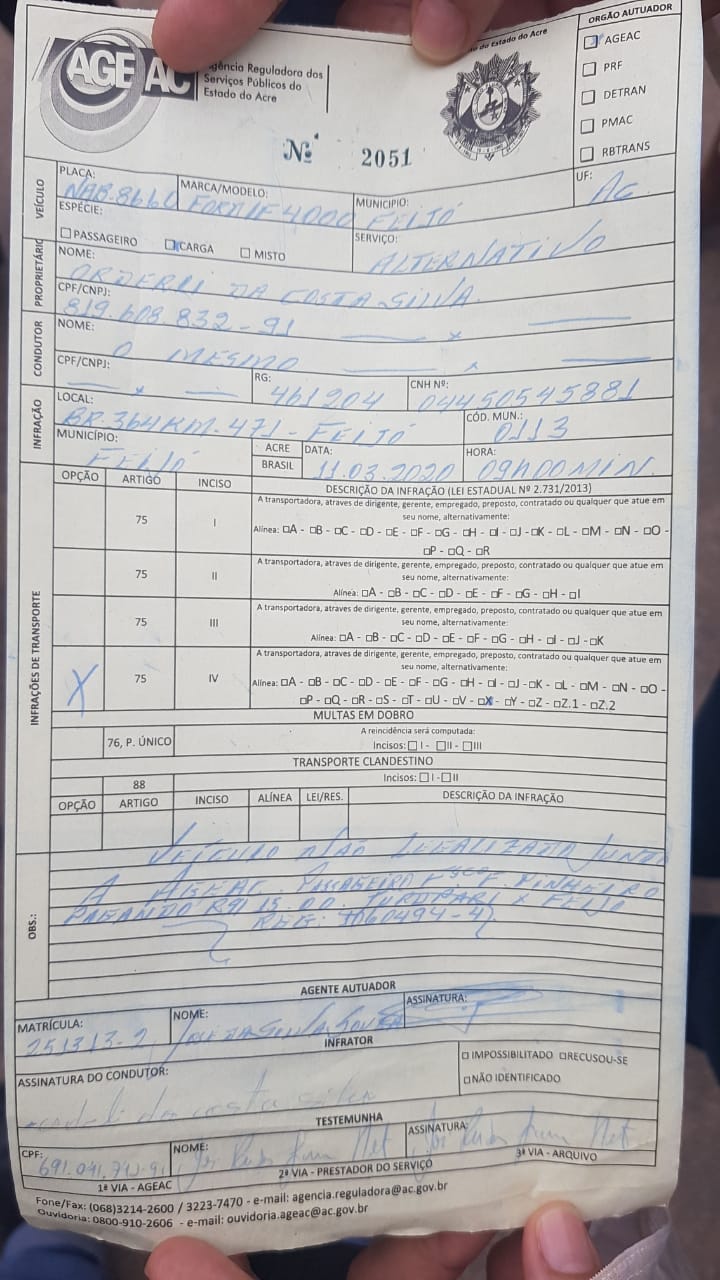 AGEAC
Agência Reguladora dos
Serviços Públicos do
Estado do Acre
do Estado do Acre
Nº 2051
ORGÃO AUTUADOR
AGEAC
PRF
DETRAN
PMAC
RBTRANS
VEÍCULO
PLACA: NAB-8660
MARCA/MODELO: FORD/F4000
MUNICIPIO: FEIJÓ
UF: AC
ESPÉCIE:
PASSAGEIRO CARGA MISTO
SERVIÇO: ALTERNATIVO
PROPRIETÁRIO
NOME: DA COSTA SILVA
CPF/CNPJ: 819.608.832-91
CONDUTOR
NOME: O MESMO
CPF/CNPJ:
RG: 461204
CNH Nº: 04450545881
INFRAÇÃO
LOCAL: BR.364 KM-471-FEIJÓ
CÓD. MUN.: 0113
MUNICÍPIO: FEIJÓ
ACRE
BRASIL
DATA: 11.03.2020
HORA: 09H00MIN
INFRAÇÕES DE TRANSPORTE
OPÇÃO ARTIGO INCISO DESCRIÇÃO DA INFRAÇÃO (LEI ESTADUAL Nº 2.731/2013)
75 I A transportadora, atraves de dirigente, gerente, empregado, preposto, contratado ou qualquer que atue em
seu nome, alternativamente:
Alínea: A - B - C - D - E - F - G - H - I - J - K - L - M - N - O -
P - Q - R
75 II A transportadora, atraves de dirigente, gerente, empregado, preposto, contratado ou qualquer que atue em
seu nome, alternativamente:
Alínea: A - B - C - D - E - F - G - H - I
75 III A transportadora, atraves de dirigente, gerente, empregado, preposto, contratado ou qualquer que atue em
seu nome, alternativamente:
Alínea: A - B - C - D - E - F - G - H - I - J - K
X 75 IV A transportadora, atraves de dirigente, gerente, empregado, preposto, contratado ou qualquer que atue em
seu nome, alternativamente:
Alínea: A - B - C - D - E - F - G - H - I - J - K - L - M - N - O -
P - Q - R - S - T - U - V - X - Y - Z - Z.1 - Z.2
MULTAS EM DOBRO
76, P. ÚNICO A reincidência será computada:
Incisos: I - II - III
TRANSPORTE CLANDESTINO
88 Incisos: I - II
OPÇÃO ARTIGO INCISO ALÍNEA LEI/RES. DESCRIÇÃO DA INFRAÇÃO
OBS.:
VEÍCULO NÃO LEGALIZADA JUNTO
A AGEAC. PASSAGEIRO PINHEIRO
PAGANDO R$ 15.00. X FEIJÓ
AGENTE AUTUADOR
MATRÍCULA: 251313-2
NOME:
ASSINATURA:
INFRATOR
ASSINATURA DO CONDUTOR: da costa silva
IMPOSSIBILITADO RECUSOU-SE
NÃO IDENTIFICADO
TESTEMUNHA
CPF:
NOME:
ASSINATURA:
1ª VIA - AGEAC 2ª VIA - PRESTADOR DO SERVIÇO 3ª VIA - ARQUIVO
Fone/Fax: (068)3214-2600 / 3223-7470 - e-mail: agencia.reguladora@ac.gov.br
Ouvidoria: 0800-910-2606 - e-mail: ouvidoria.ageac@ac.gov.br